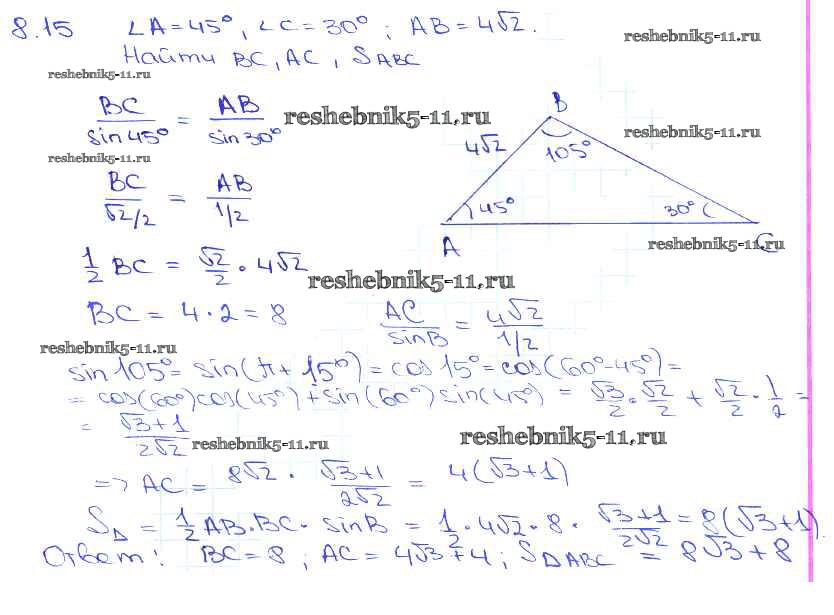 8.15 ∠A=45°, ∠C=30°; AB=4√2.
reshebnik5-11.ru
Найти BC, AC, S ABC
reshebnik5-11.ru
BC/sin45° = AB/sin30°
reshebnik5-11.ru
B
reshebnik5-11.ru
4√2
105°
reshebnik5-11.ru
BC/√2/2 = AB/1/2
45°
30°
A
C
reshebnik5-11.ru
1/2 BC = √2/2 · 4√2
reshebnik5-11.ru
BC = 4·2 = 8
AC/sinB = 4√2/1/2
reshebnik5-11.ru
sin105° = sin(π+15°) = cos15° = cos(60°-45°) =
= cos(60°)cos(45°)+sin(60°)sin(45°) = √3/2·√2/2 + √2/2·1/2 =
= √3+1/2√2
reshebnik5-11.ru
reshebnik5-11.ru
=> AC = 8√2 · √3+1/2√2 = 4(√3+1)
SΔ = 1/2 AB·BC·sinB = 1/2·4√2·8·√3+1/2√2 = 8(√3+1).
Ответ: BC=8; AC=4√3+4; SΔABC = 8√3+8